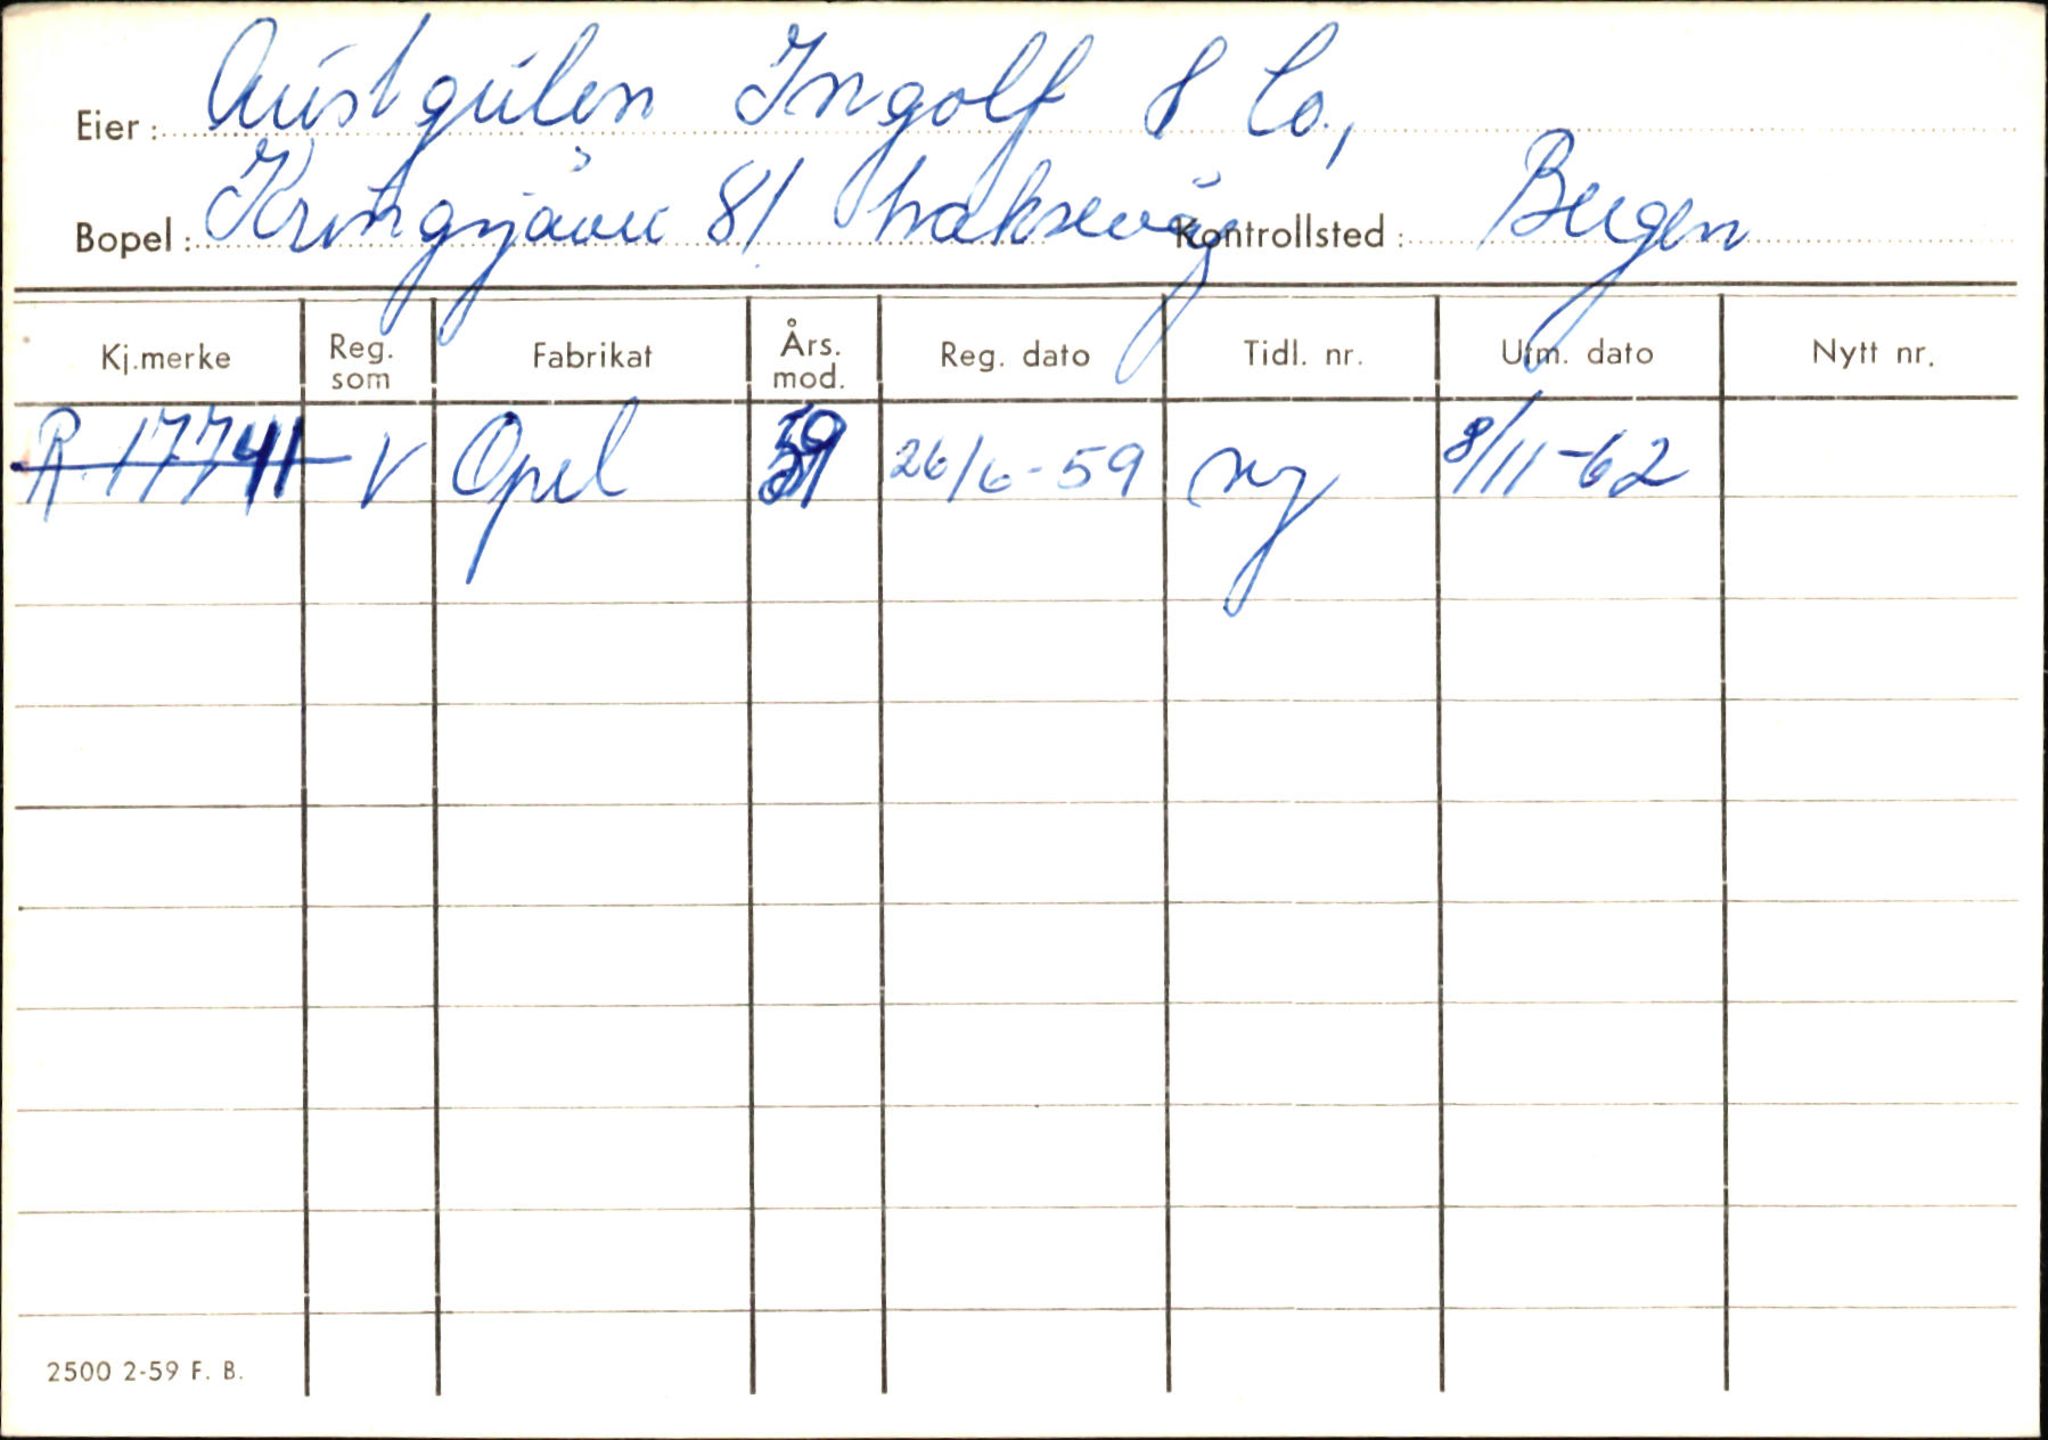 Eier: Austgulen Ingolf & Co,
Bopel: 81 Laksevåg Kontrollsted: Bergen
Kj.merke Reg. som Fabrikat Års. mod. Reg. dato Tidl. nr. Utm. dato Nytt nr.
R 17741 V Opel 59 26/6-59 ny 8/11-62
2500 2-59 F. B.